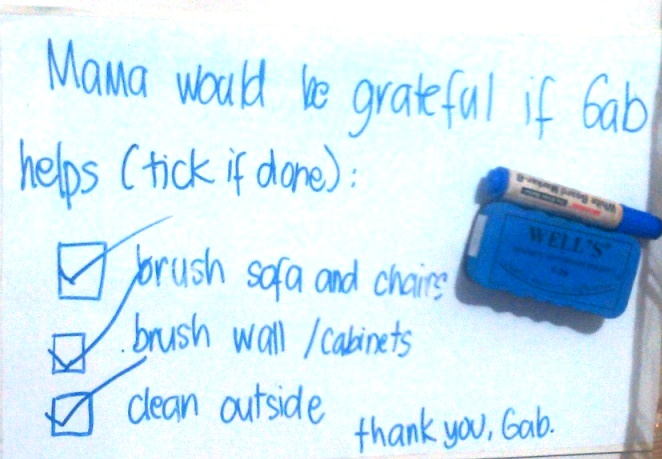 Mama would be grateful if Gab
helps (tick if done):
brush sofa and chairs
brush wall / cabinets
clean outside
thank you, Gab.
White Board Marker
WELL'S